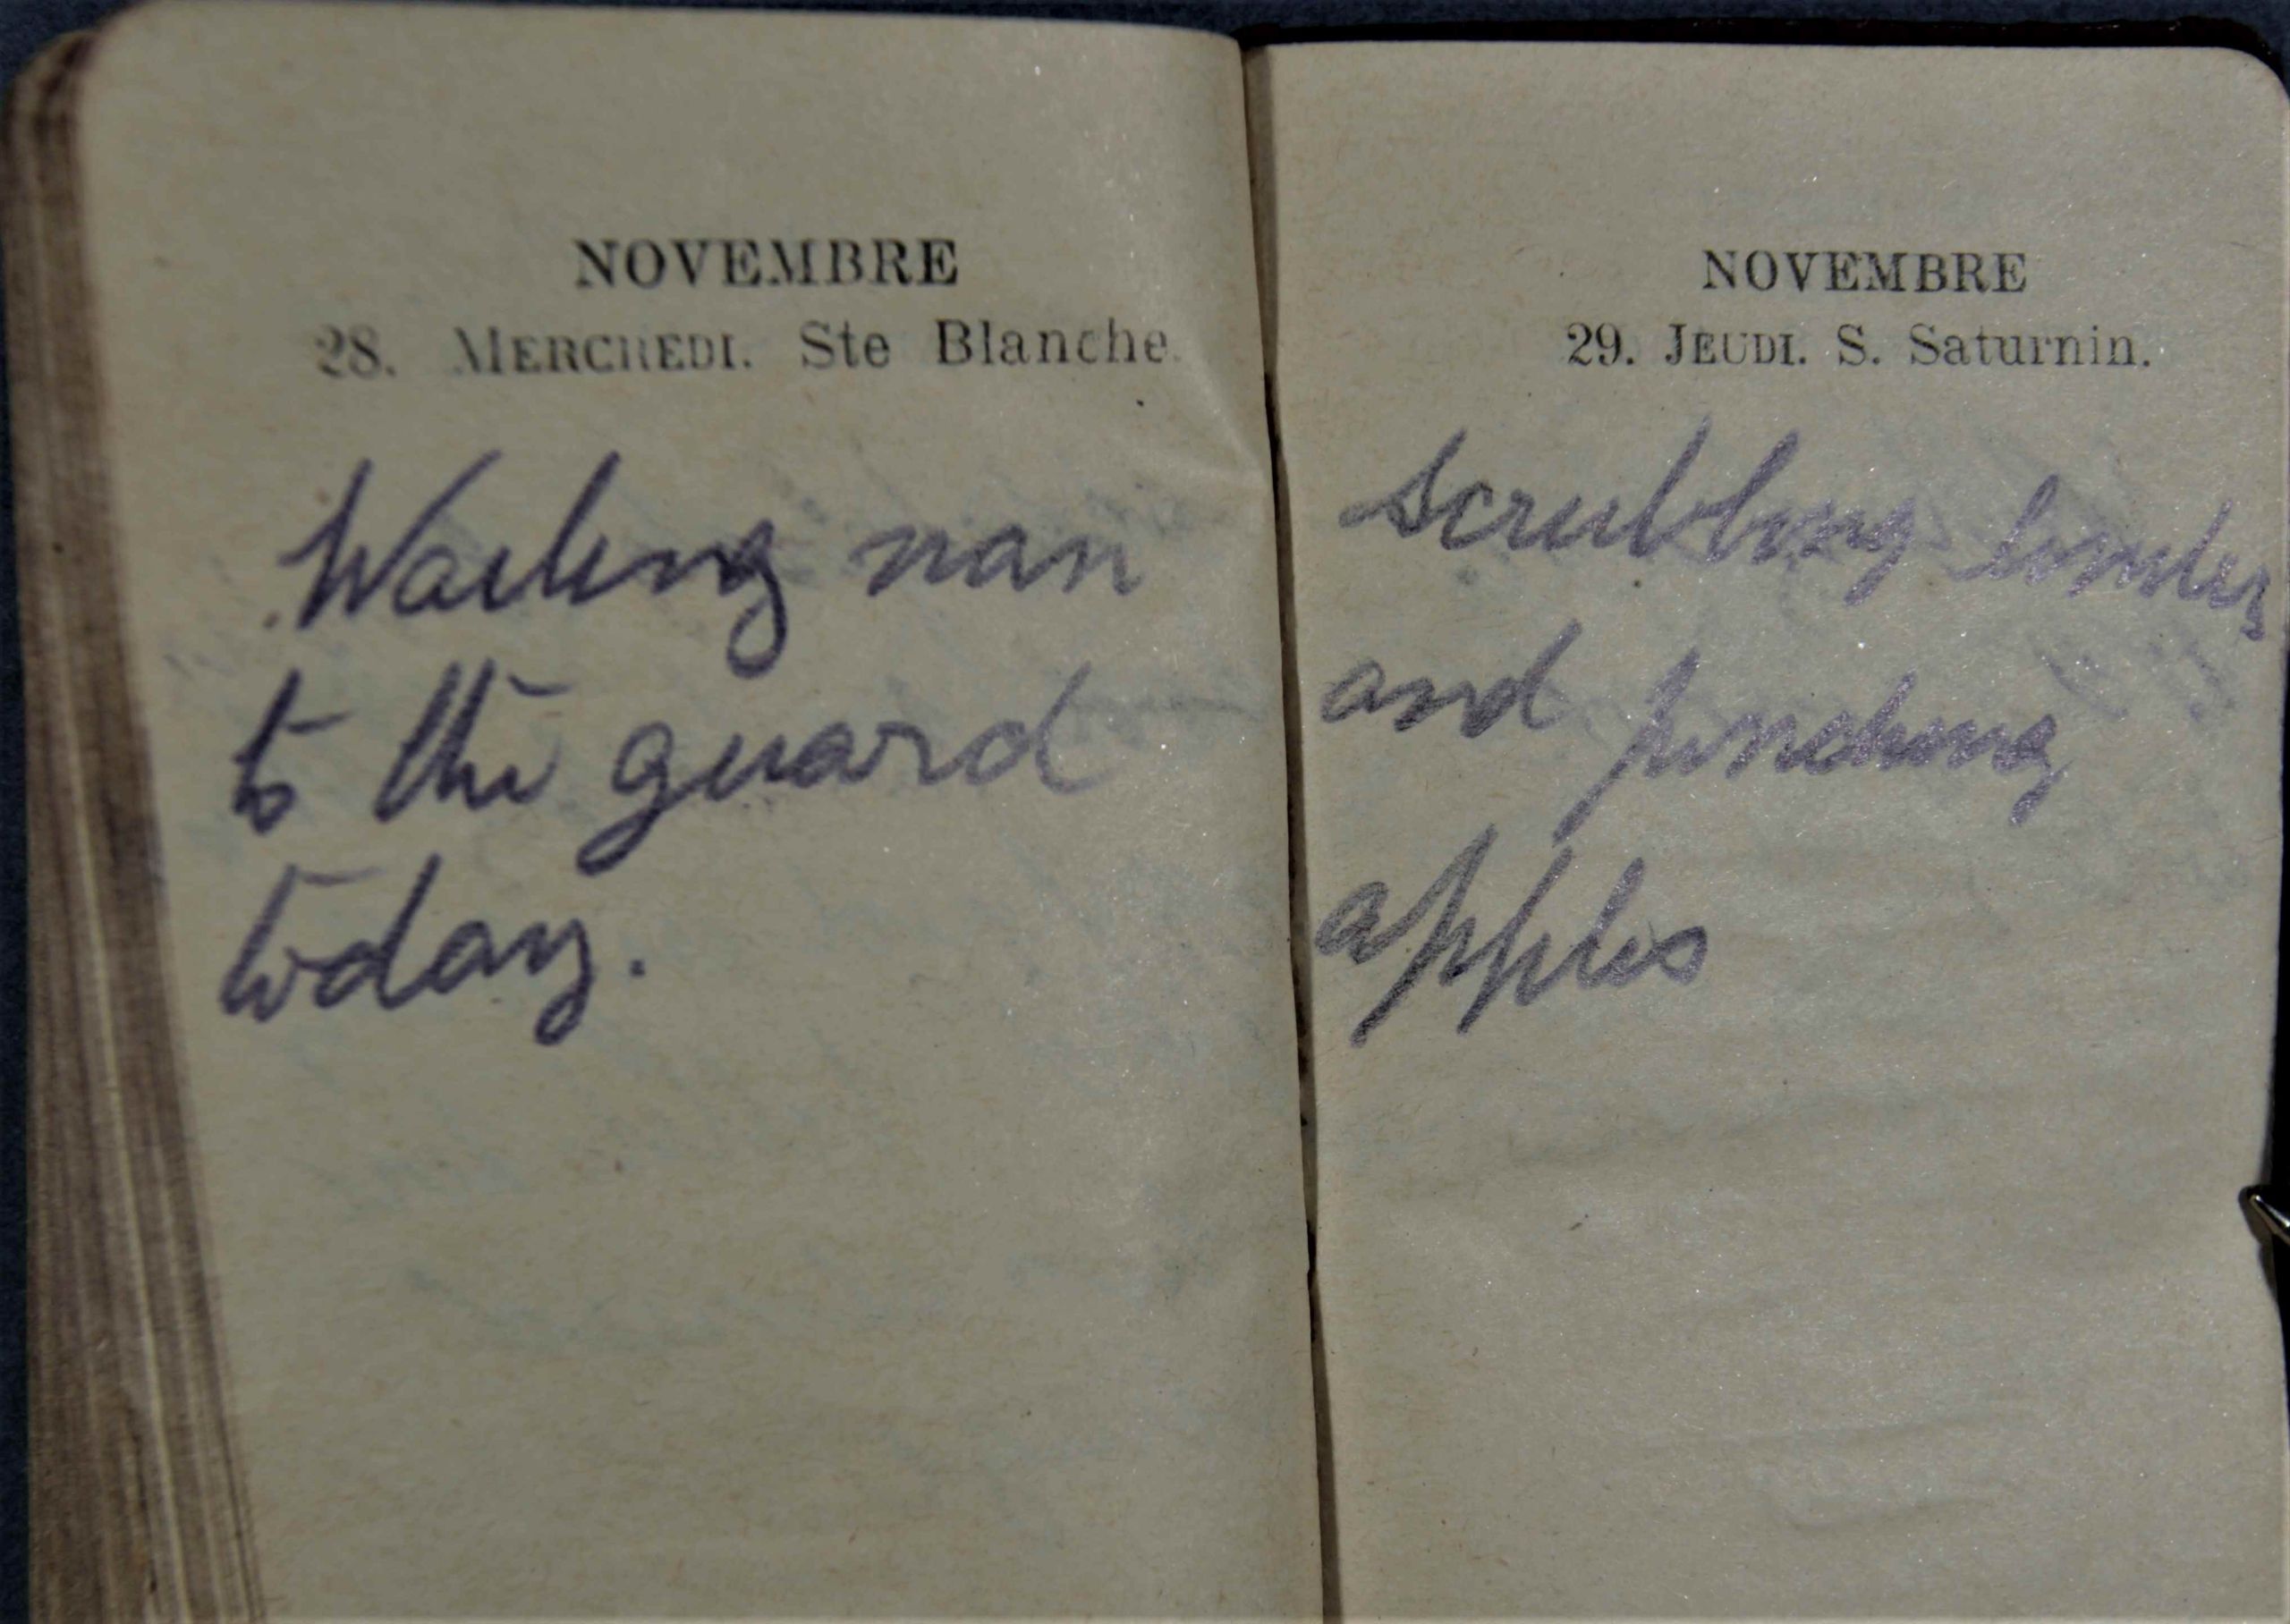 NOVEMBRE
28. MERCREDI. Ste Blanche.
Waiting man
to the guard
today.
NOVEMBRE
29. JEUDI. S. Saturnin.
scrubbing limbers
and pinching
apples